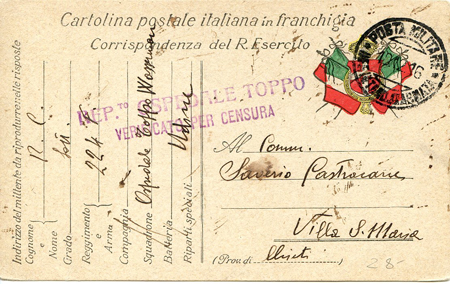 Cartolina postale italiana in franchigia
Corrispondenza del R. Esercito
POSTA MILITARE
16
DEP.to OSPEDALE TOPPO
VERIFICATO PER CENSURA
Indirizzo del mittente da riprodurre nelle risposte
Cognome
e
Nome
Grado
Reggimento 224
e
Arma
Compagnia
Squadrone Ospedale Toppo
Batteria
Riparti speciali
Udine
Al Comm.
Saverio Castracane
Villa S. Maria
(Prov. di) Chieti
28-